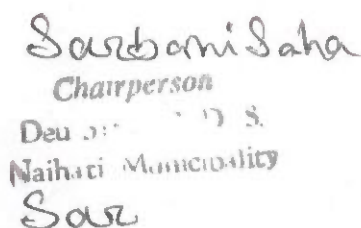 Sarbani Saha
Chairperson
Deu D. S.
Naihati Municipality
Sar